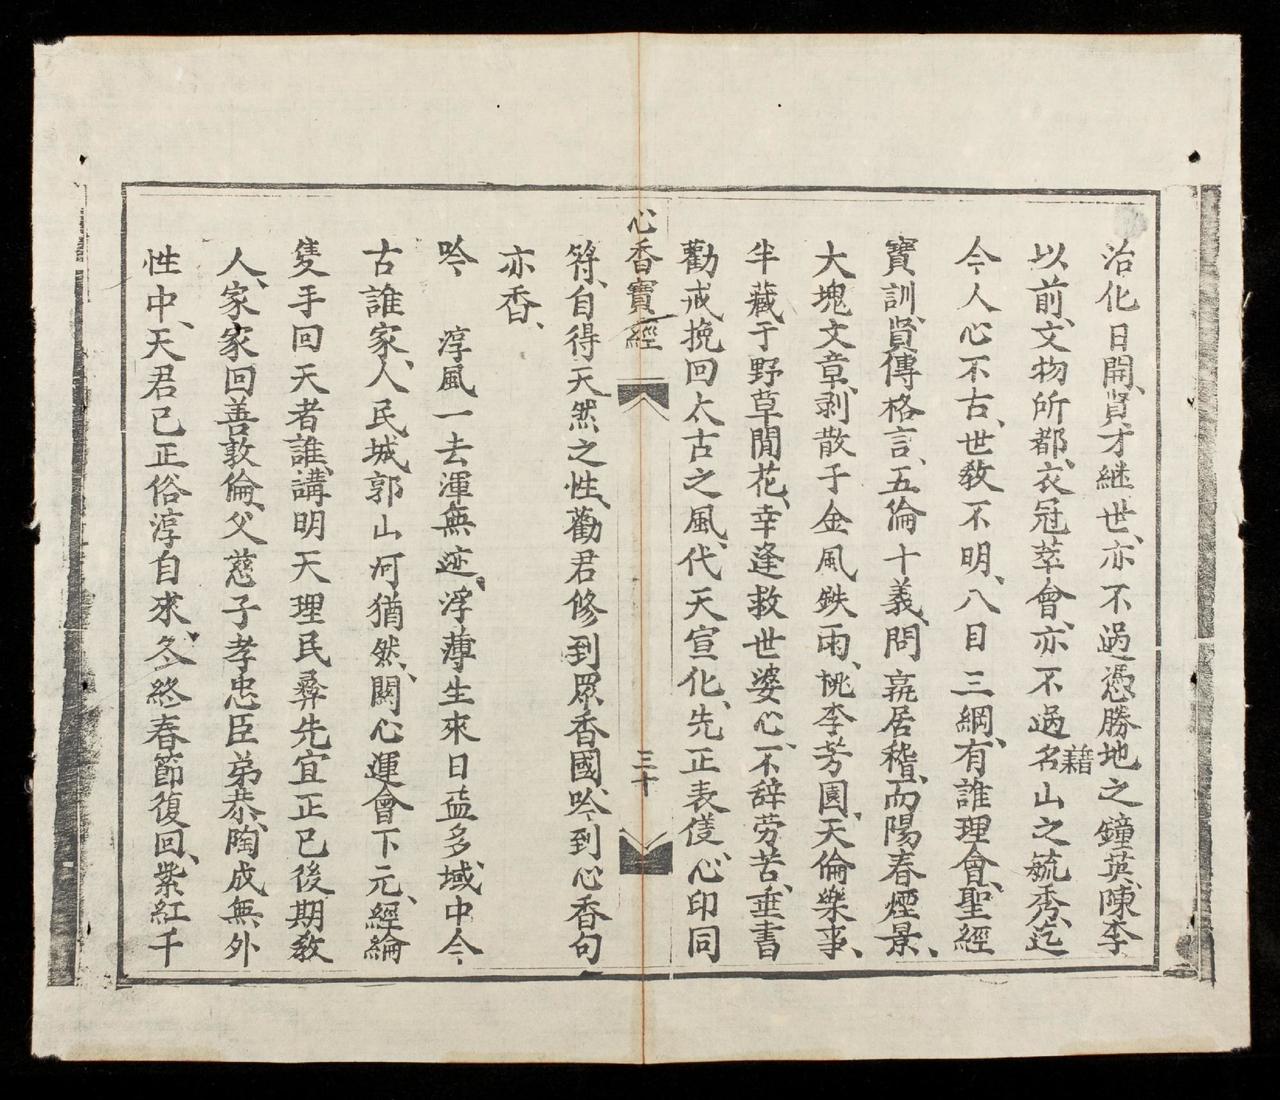 治化日開、賢才継世、亦不過憑勝地之鐘英、陳李
以前、文物所都、衣冠萃會、亦不過名山之毓秀、迄
藉
今人心不古、世教不明、八目三綱、有誰理會、聖經
寶訓、賢傳格言、五倫十義、問孰居稽、而陽春煙景、
大塊文章、剥散于金風鉄雨、桃李芳園、天倫樂事、
半藏于野草閒花、幸逢救世婆心、不辞劳苦、垂書
勸戒、挽回太古之風、代天宣化、先正表儀、心印同
心香寶經
三十
符、自得天然之性、勸君修到眾香國、吟到心香句
亦香、
吟 淳風一去渾無迹、浮薄生來日益多、域中今
古誰家、人民城郭山河猶然、関心運會下元、經綸
隻手回天者誰、講明天理民彝先宜正己後期教
人、家家回善敦倫、父慈子孝忠臣弟恭、陶成無外
性中、天君已正俗淳自求、冬終春節復回、紫紅千